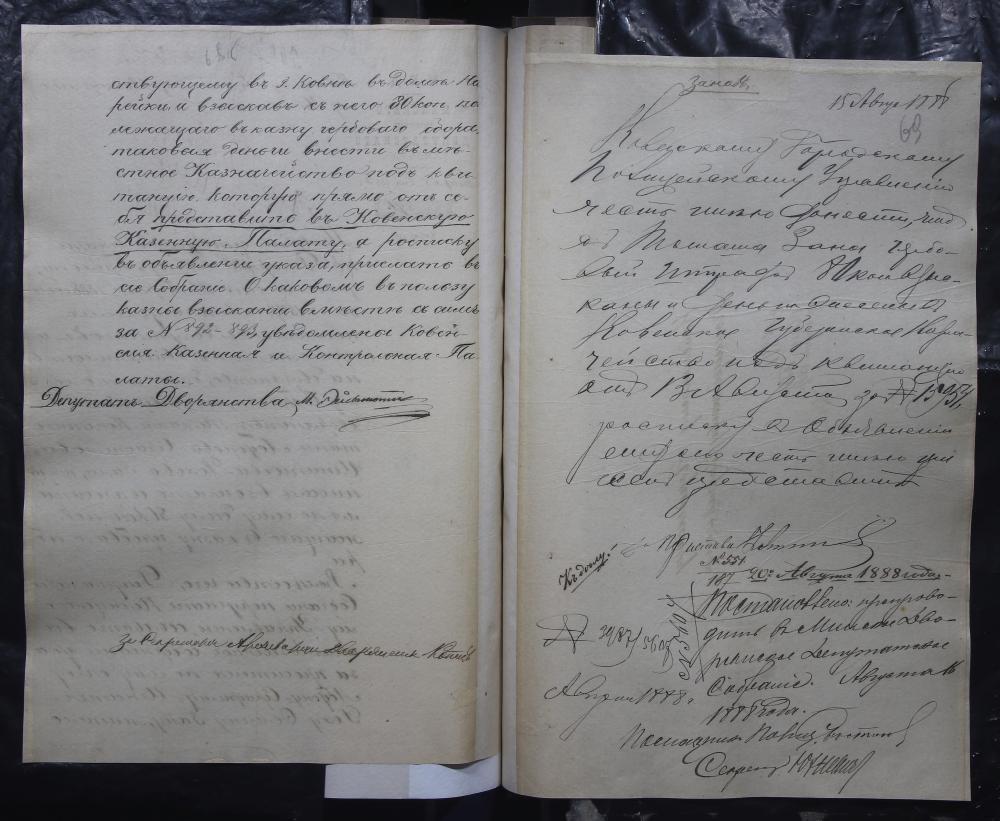 ствующему въ г. Ковнѣ въ домѣ На
рейки и взыскавъ съ него 80 коп. по
лежащаго въ казну гербоваго сбора,
таковыя деньги внести въ мѣ-
стное Казначейство подъ кви
танцію, которую прямо отъ се-
бя представить въ Ковенскую
Казенную Палату, а росписку
въ объявленіи указа, прислать въ
сіе Собраніе. О каковомъ въ пользу
казны взысканіи вмѣстѣ съ симъ
за N 892-893 увѣдомлены Ковен-
ская Казенная и Контрольная Па
латы.
Депутатъ Дворянства М.
За Секретаря
15 Авгу 1888
69
Ковенскому Городскому
Полицейскому Управленію
честь имѣю донести, что
съ Гербо-
вый штрафъ 80 коп взы-
сканы и деньги внесены въ
Ковенское Губернское Казна
чейство подъ квитанцію
отъ 13 Августа за N 13957,
росписку въ объявленіи
ему честь имѣю при
семъ представить
Приставъ
N 551
Къ дѣлу!
187 20го Августа 1888 года
Постановлено: препрово-
дить въ Минское Дво-
рянское Депутатское
Собраніе. Августа
1888 года.
N 5104
N
1888 г
Секретарь